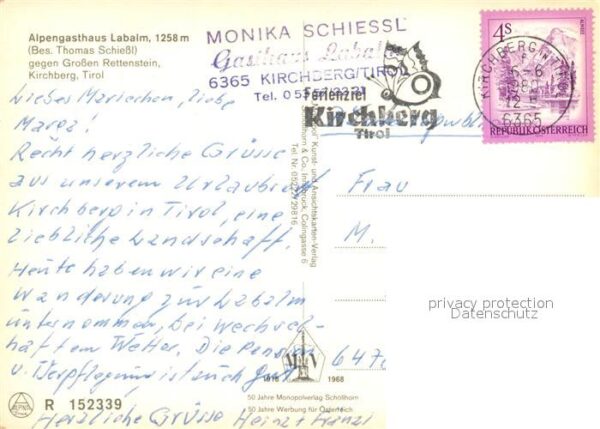 Alpengasthaus Labalm, 1258 m
(Bes. Thomas Schießl)
gegen Großen Rettenstein,
Kirchberg, Tirol
MONIKA SCHIESSL
Gasthaus Labalm
6365 KIRCHBERG/TIROL
Tel.
Ferienziel
Kirchberg
Tirol
KIRCHBERG IN TIROL
6365
4S
REPUBLIK ÖSTERREICH
Liebes Mariechen, liebe
Recht herzliche Grüsse
aus unserem Urlaubsort
Kirchberg in Tirol, eine
liebliche Landschaft.
Heute haben wir eine
Wanderung zur Labalm
unternommen, bei wechsel-
haftem Wetter. Die Pension
u. Verpflegung ist auch gut
Herzliche Grüsse Heinz + Franzi
Kunst- und Ansichtskarten-Verlag
& Co., Innsbruck, Colingasse 6
Tel. Nr. 05222/29816
Frau
M.
647
1918 1968
50 Jahre Monopolverlag Schöllhorn
50 Jahre Werbung für Österreich
ALPINA
R 152339
privacy protection
Datenschutz